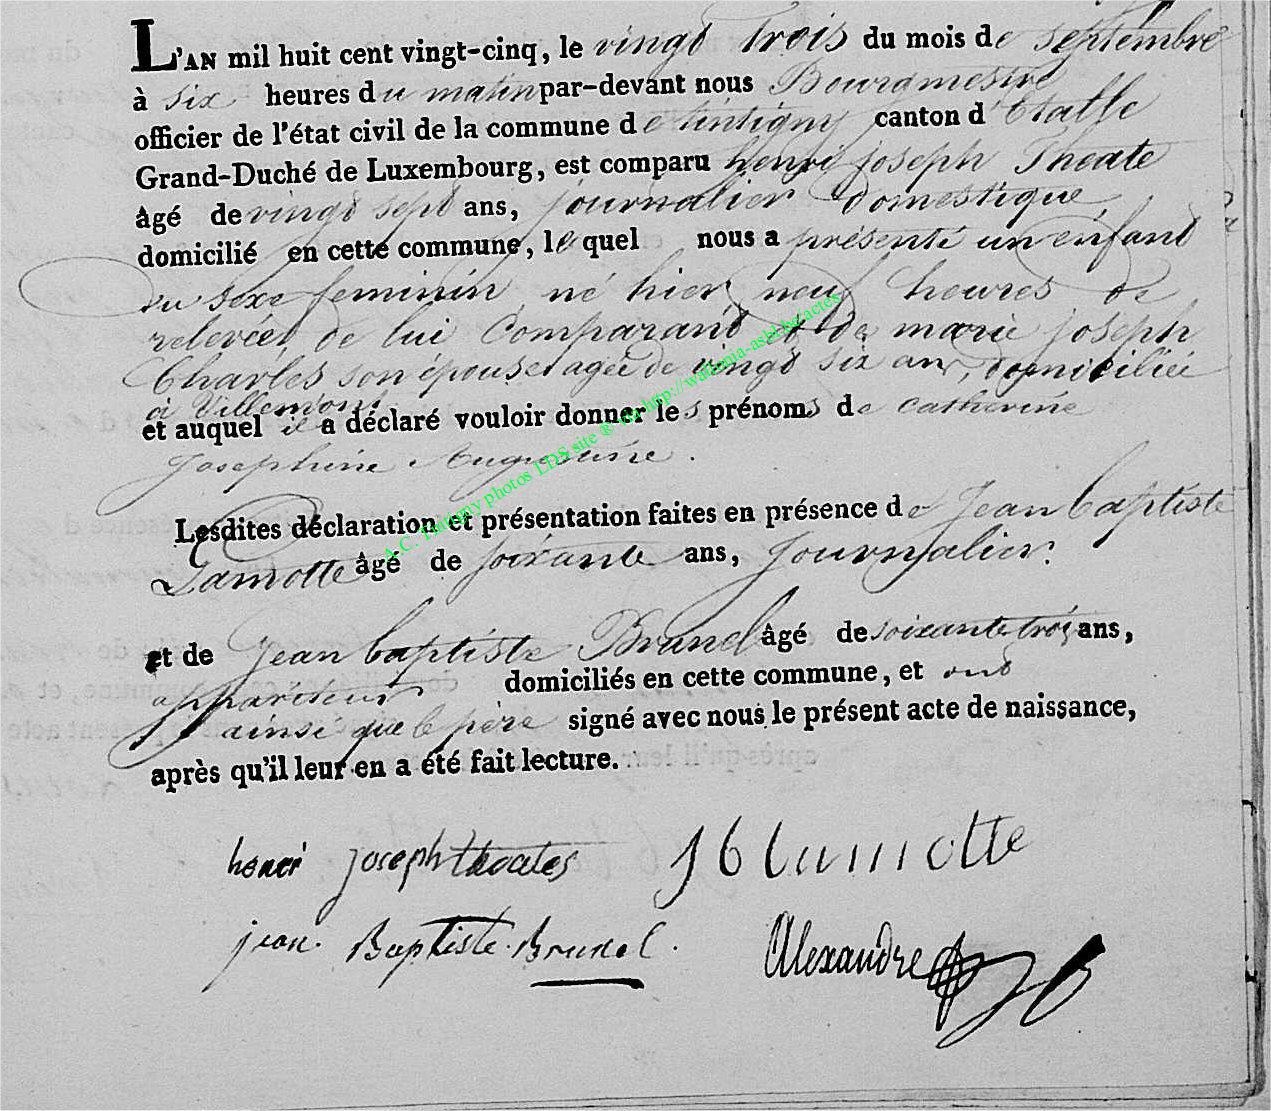 L'AN mil huit cent vingt-cinq, le vingt trois du mois de septembre
à six heures du matin par-devant nous Bourgmestre
officier de l'état civil de la commune de tintigny canton d'Etalle
Grand-Duché de Luxembourg, est comparu henri joseph Theate
âgé de vingt sept ans, journalier domestique
domicilié en cette commune, lequel nous a présenté un enfant
du sexe feminin né hier neuf heures de
relevée, de lui Comparant et de marie joseph
Charles son épouse agée de vingt six ans, domiciliée
à Villemont
et auquel il a déclaré vouloir donner les prénoms de Catherine
Josephine Augustine.
Lesdites déclaration et présentation faites en présence de Jean baptiste
Lamotte âgé de soixante ans, journalier.
et de Jean baptiste Brunel âgé de soixante trois ans,
appariteur domiciliés en cette commune, et ont
ainsi que le père signé avec nous le présent acte de naissance,
après qu'il leur en a été fait lecture.
henri joseph theates J b lamotte
jean. Baptiste. Brunel. Alexandre
A.C. Tintigny photos LDS site ® via http://wallonia-asbl.be/actes